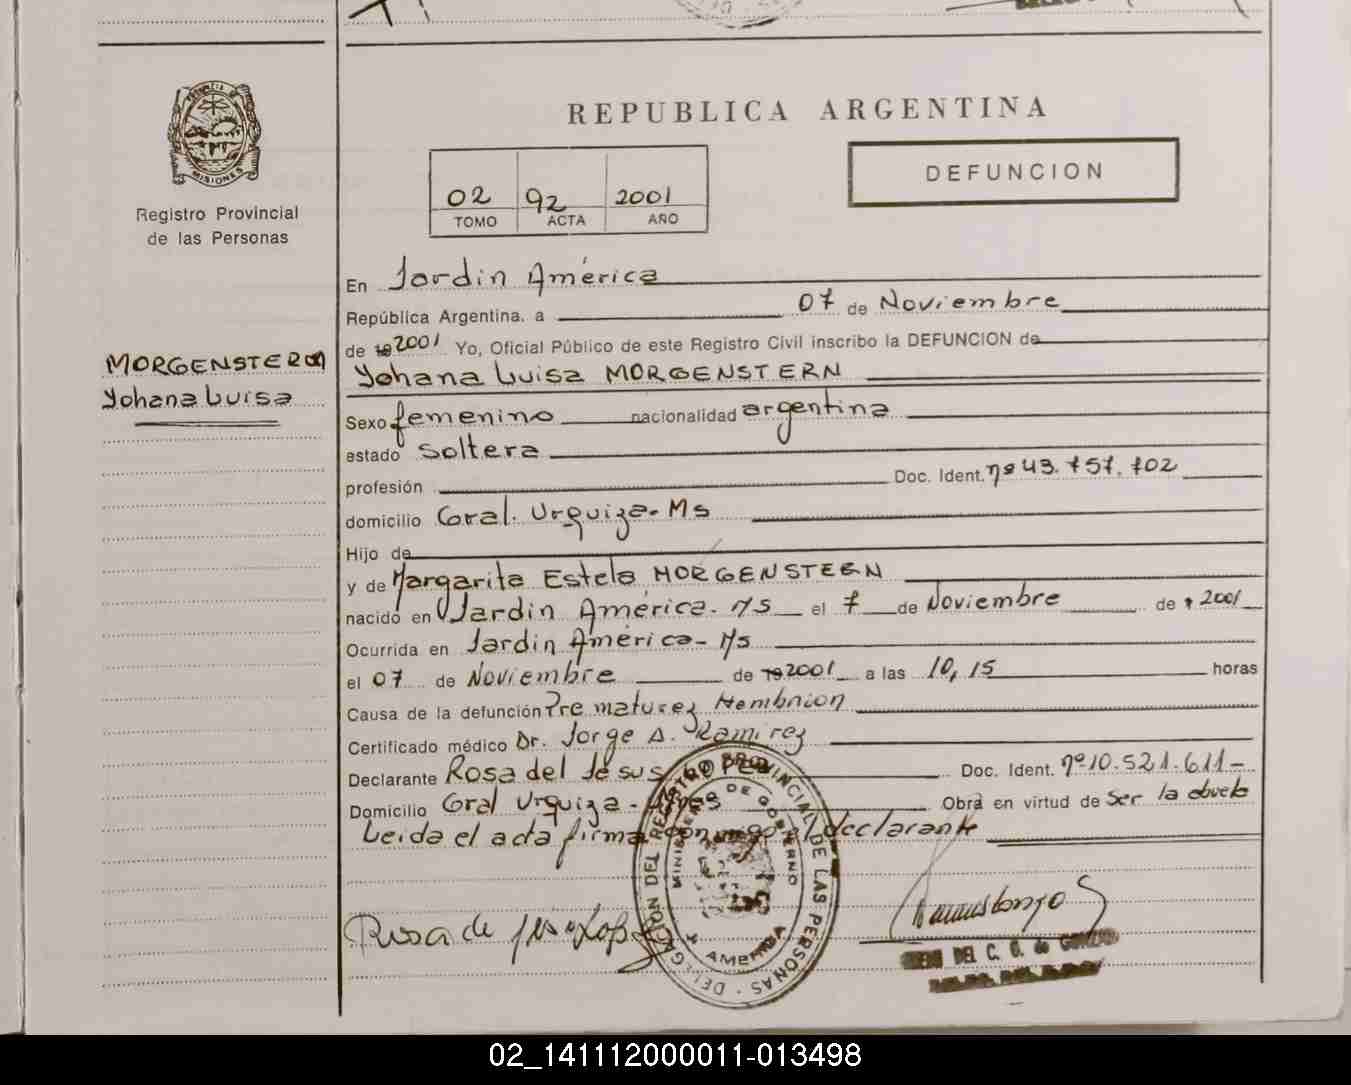 REPUBLICA ARGENTINA
DEFUNCION
02 92 2001
TOMO ACTA AÑO
MISIONES
Registro Provincial
de las Personas
MORGENSTERN
Yohana Luisa
En Jardin América
República Argentina. a 07 de Noviembre
de 19 2001 Yo, Oficial Público de este Registro Civil inscribo la DEFUNCION de
Yohana Luisa MORGENSTERN
Sexo femenino nacionalidad argentina
estado Soltera
profesión Doc. Ident. nº 43.757.702
domicilio Gral. Urquiza-Ms
Hijo de
y de Margarita Estela MORGENSTERN
nacido en Jardin América-Ms el 7 de Noviembre de 2001
Ocurrida en Jardin América-Ms
el 07 de Noviembre de 19 2001 a las 10,15 horas
Causa de la defunción Prematurez
Certificado médico Dr. Jorge A. Ramirez
Declarante Rosa del Jesus LOPEZ Doc. Ident. nº 10.521.611-
Domicilio Gral Urquiza- Obra en virtud de Ser la abuela
Leida el acta firma conmigo el declarante
Rosa de
DELEGACION DEL REGISTRO PROVINCIAL DE LAS PERSONAS
MINISTERIO DE GOBIERNO
AMERICA
DEL C. G. de
02_141112000011-013498